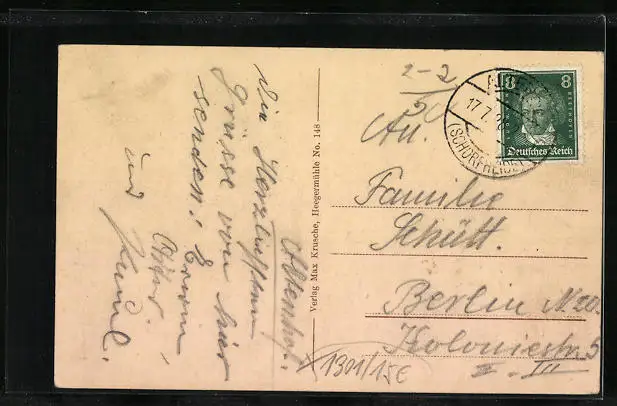 Altenhof.
Die Herzlichsten
Grüsse von hier
senden: Erwin
und
Verlag Max Krusche, Heegermühle No. 148
2-2
An.
Familie
Schütt.
Berlin N 20.
Koloniestr. 5
II - III
1301/15E
8 8
BEETHOVEN
Deutsches Reich
17.7.
(SCHORFHEIDE)